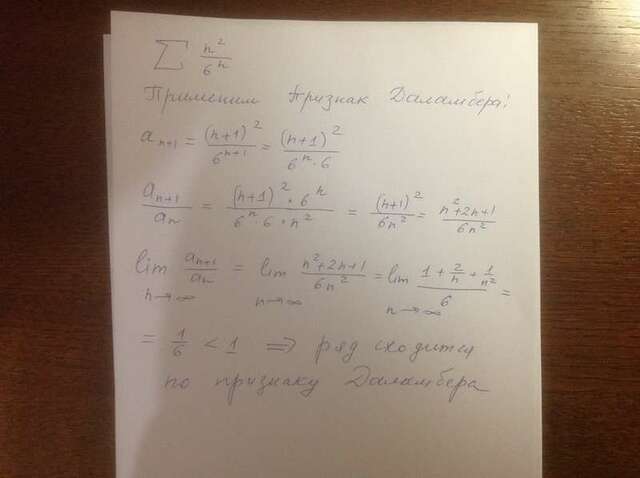 ∑ n²/6ⁿ
Применим Признак Даламбера!
aₙ₊₁ = (n+1)²/6ⁿ⁺¹ = (n+1)²/(6ⁿ·6)
aₙ₊₁/aₙ = (n+1)²·6ⁿ/(6ⁿ·6·n²) = (n+1)²/6n² = (n²+2n+1)/6n²
lim n→∞ aₙ₊₁/aₙ = lim n→∞ (n²+2n+1)/6n² = lim n→∞ (1 + 2/n + 1/n²)/6 =
= 1/6 < 1 ⟹ ряд сходится
по признаку Даламбера